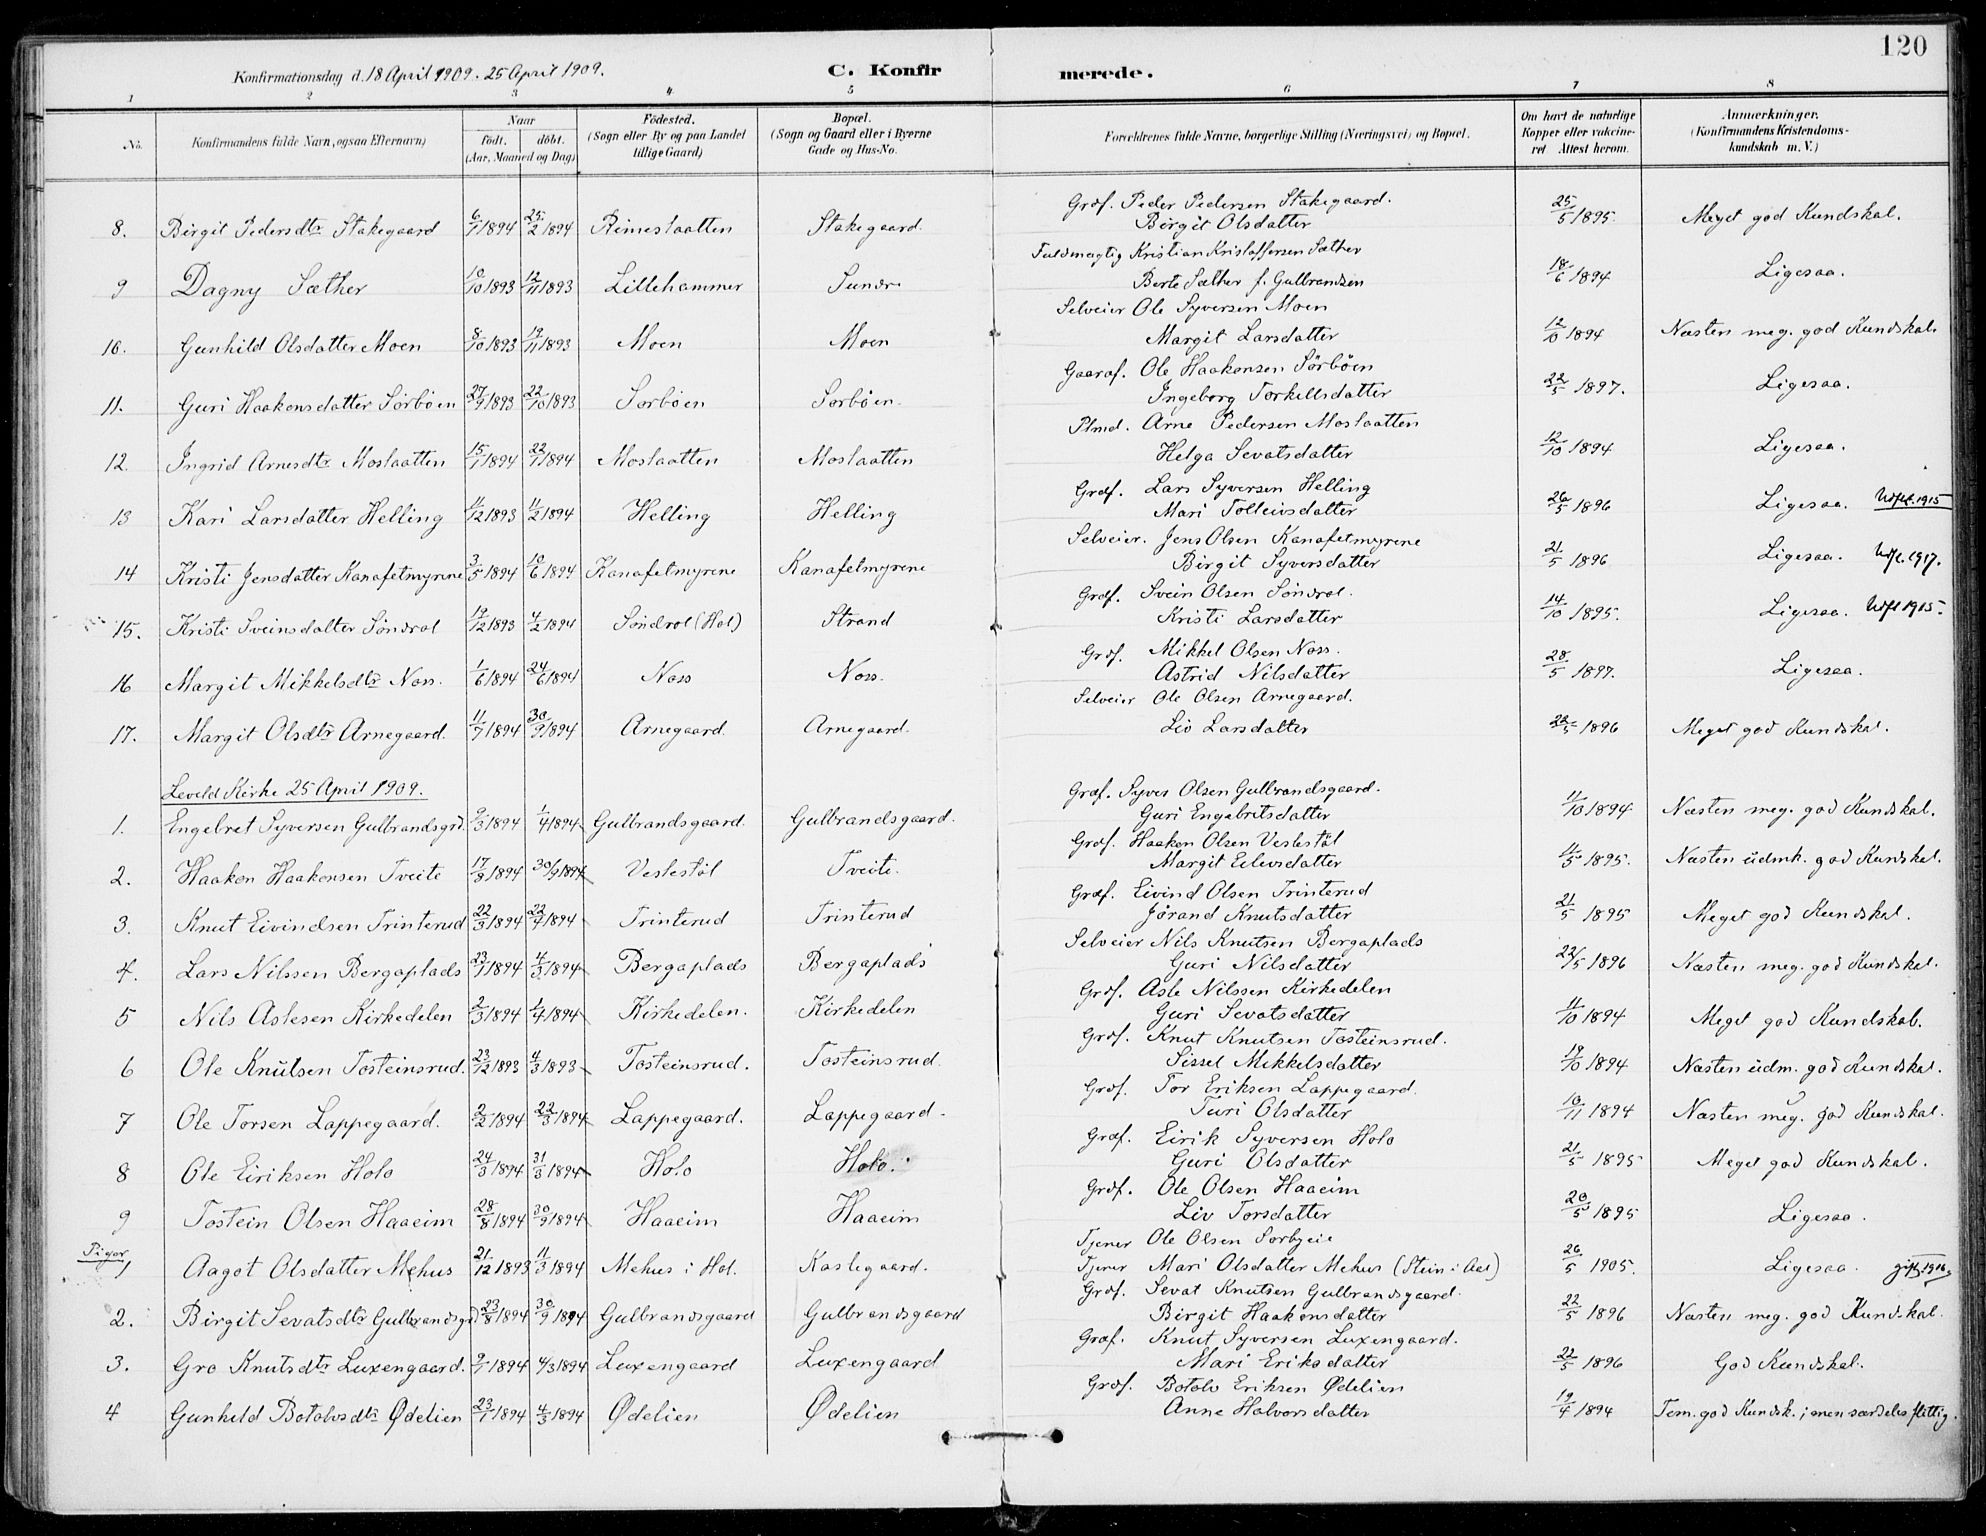 120
Konfirmationsdag d. 18 April 1909. 25 April 1909. C. Konfirmerede.
1 2 3 4 5 6 7 8
No. Konfirmandens fulde Navn, ogsaa Efternavn) Naar født. døbt. (Aar, Maaned og Dag) Fødested. (Sogn eller By og paa Landet tillige Gaard) Bopæl. (Sogn og Gaard eller i Byerne Gade og Hus-No. Forældrenes fulde Navne, borgerlige Stilling (Næringsvei) og Bopæl. Om havt de naturlige Kopper eller vakcineret. Attest herom. Anmerkninger. (Konfirmandens Kristendomskundskab m. V.)
Graf. Peder Pedersen Stakegaard.
8. Birgit Pedersdtr Stakegaard 6/1 1894 25/2 1894 Reineslaatten Stakegaard. Birgit Olsdatter 25/5 1895. Meget god Kundskal.
Fuldmægtig Kristian Kristoffersen Sæther
9 Dagny Sæther 10/10 1893 12/11 1893 Lillehammer Sundre Berte Sæther f. Gulbrandsen 18/6 1894 Ligesaa.
Selveier Ole Syversen Moen
10. Gunhild Olsdatter Moen 8/10 1893 19/11 1893 Moen Moen Margit Larsdatter 12/10 1894 Næsten meg. god Kundskal.
Gaaraf. Ole Haakensen Sørbøen
11. Guri Haakonsdatter Sørbøen 27/9 1893 22/10 1893 Sørbøen Sørbøen. Ingeborg Torkellsdatter 22/5 1897. Ligesaa.
Plmd. Arne Pedersen Moslaatten
12. Ingrid Arnesdtr Moslaatten 15/1 1894 22/1 1894 Moslaatten Moslaatten Helga Sevatsdatter 12/10 1894 Ligesaa.
Graf. Lars Syversen Helling
13 Kari Larsdatter Helling 11/12 1893 11/2 1894 Helling Helling Mari Tolleivsdatter 26/5 1896 Ligesaa. Utfl. 1915
Selveier. Jens Olsen Kanafetmyrene
14 Kristi Jensdatter Kanafetmyrene 3/5 1894 10/6 1894 Kanafelmyrene Kanafelmyrene Birgit Syversdatter 21/5 1896 Ligesaa. Utfl. 1917.
Graf. Svein Olsen Søndrol.
15. Kristi Sveinsdatter Søndrol 19/12 1893 4/2 1894 Søndrol (Hol) Strand Kristi Larsdatter 14/10 1895. Ligesaa. Utfl 1915.
Graf. Mikkel Olsen Noss.
16 Margit Mikkelsdtr Noss. 1/6 1894 24/6 1894 Noss Noss. Astrid Nilsdatter 28/5 1897. Ligesaa.
Selveier Ole Olsen Arnegaard.
17. Margit Olsdtr Arnegaard. 11/7 1894 30/9 1894 Arnegaard. Arnegaard. Liv Larsdatter 22/5 1896 Meget god Kundskal.
Leveld Kirke 25 April 1909.
Graf. Syver Olsen Gulbrandsgaard.
1. Engebret Syversen Gulbrandsgrd. 9/3 1894 1/4 1894 Gulbrandsgaard. Gulbrandsgaard. Guri Engebritsdatter 11/10 1894 Næsten meg. god Kundskal.
Graf. Haakon Olsen Veslestøl
2. Haakon Haakensen Tveite 17/8 1894 30/9 1894 Veslestøl Tveite. Margit Eilevsdatter 11/5 1895. Næsten udmk. god Kundskal.
Graf. Eivind Olsen Trinterud
3. Knut Eivindsen Trinterud 22/3 1894 22/4 1894 Trinterud Trinterud Jørand Knutsdatter 21/5 1895 Meget god Kundskal.
Selveier Nils Knutsen Bergaplads
4. Lars Nilssen Bergaplads 23/1 1894 4/3 1894 Bergaplads Bergaplads Guri Nilsdatter 22/5 1896 Næsten meg. god Kundskal.
Graf. Asle Nilssen Kirkedelen
5 Nils Aslesen Kirkedelen 2/3 1894 1/4 1894 Kirkedelen. Kirkedelen Guri Sevatsdatter 11/10 1894 Meget god Kundskab.
Graf. Knut Knutsen Tosteinsrud.
6 Ole Knutsen Tosteinsrud. 23/12 1893 4/3 1893 Tosteinsrud. Tosteinsrud. Sissel Mikkelsdatter 19/10 1894 Næsten udm. god Kundskal.
Graf. Tor Eriksen Lappegaard.
7 Ole Torsen Lappegaard. 2/2 1894 22/3 1894 Lappegaard. Lappegaard. Turi Olsdatter 10/11 1894 Næsten meg. god Kundskal.
Graf. Eirik Syversen Holo
8 Ole Eiriksen Holo 24/3 1894 31/3 1894 Holo Holo. Guri Olsdatter 21/5 1895 Meget god Kundskal.
Graf. Ole Olsen Haaeim
9 Tostein Olsen Haaeim 28/8 1894 30/9 1894 Haaeim Haaeim Liv Torsdatter 20/5 1895 Ligesaa.
Piger Tjener Ole Olsen Sorbyeie
1 Aagot Olsdatter Mehus 21/12 1893 11/3 1894 Mehus i Hol. Kaslegaard. Tjener Mari Olsdatter Mehus (Stein i Aal) 26/5 1905. Ligesaa. gift 1916
Graf. Sevat Knutsen Gulbrandsgaard.
2. Birgit Sevatsdtr Gulbrandsgrd 23/8 1894 30/9 1894 Gulbrandsgaard Gulbrandsgaard Birgit Haakonsdatter 22/5 1896 Næsten meg. god Kundskal.
Graf. Knut Syversen Luxengaard.
3. Gro Knutsdtr Luxengaard. 9/1 1894 4/3 1894 Luxengaard Luxengaard Mari Eriksdatter 22/5 1896 God Kundskal.
Graf. Botolv Eriksen Ødelien
4 Gunhild Botolvsdtr Ødelien 23/1 1894 4/3 1894 Ødelien Ødelien Anne Halvorsdatter 19/4 1894 Tem. god Kundsk.; men særdeles flittig.